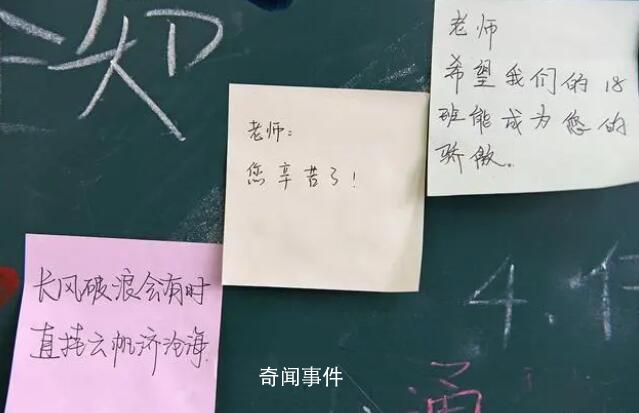 老师
希望我们的18
班能成为您的
骄傲。
老师：
您辛苦了！
长风破浪会有时
直挂云帆济沧海
4.
通
奇闻事件